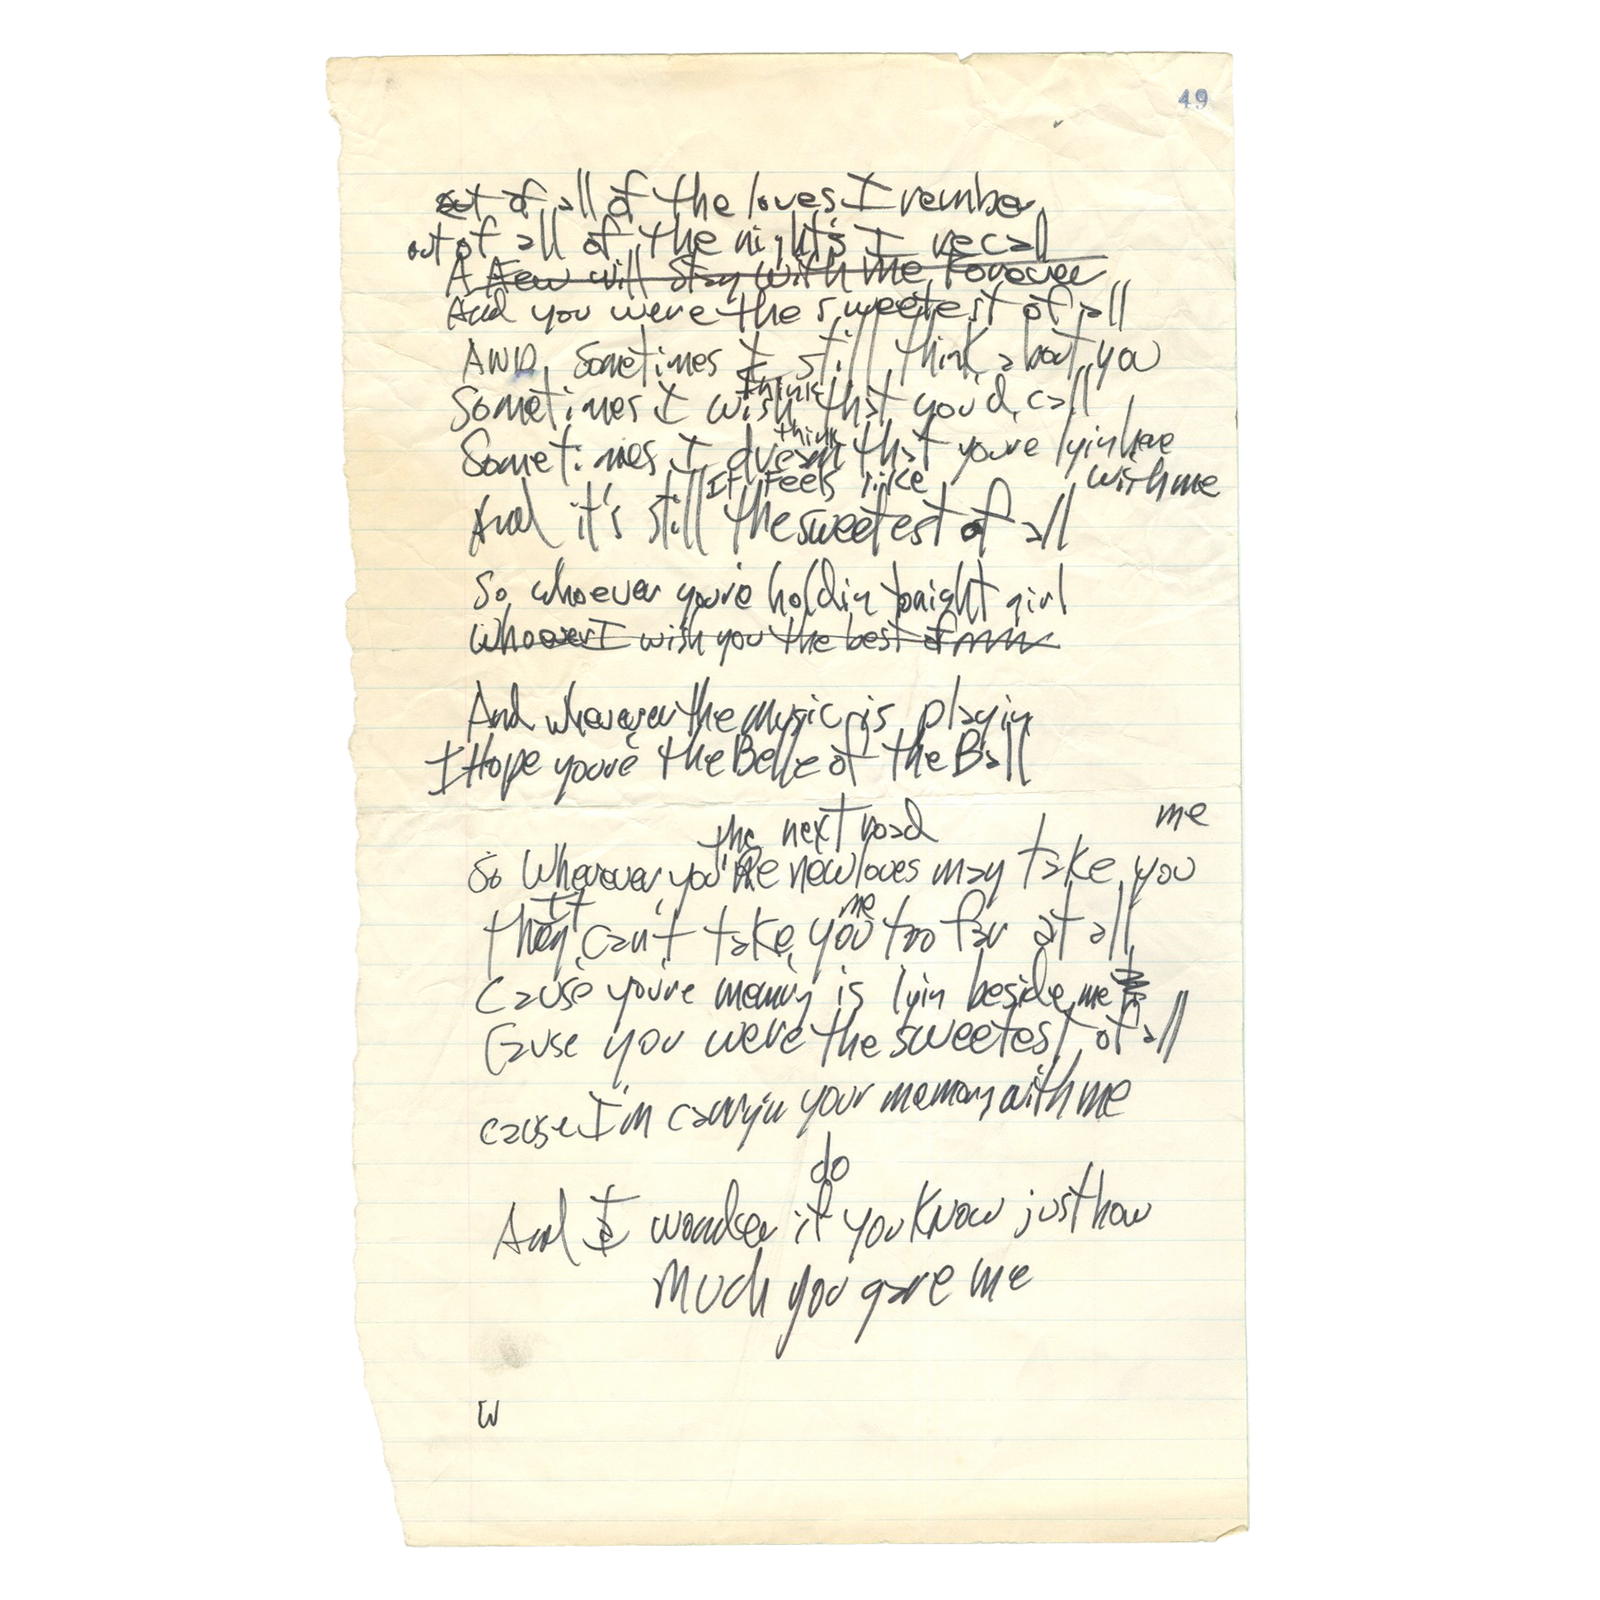 49
out of all of the loves I rember
out of all of the nights I recall
A Few will stay with me Forever
And you were the sweetest of all
AND sometimes I still think about you
think
Sometimes I wish that you'd call
think
Sometimes I dream that youre lyin here
with me
It Feels like
And it's still the sweetest of all
So whoever you're holdin tonight girl
Whoever I wish you the best of
And wherever the music is playin
I Hope youre the Belle of the Ball
the next road me
So Wherever you're new loves may take you
it me
they can't take you too far at all
Cause you're memry is lyin beside me
Cause you were the sweetest of all
cause I'm carryin your memory with me
do
And I wonder if you know just how
Much you gave me
W